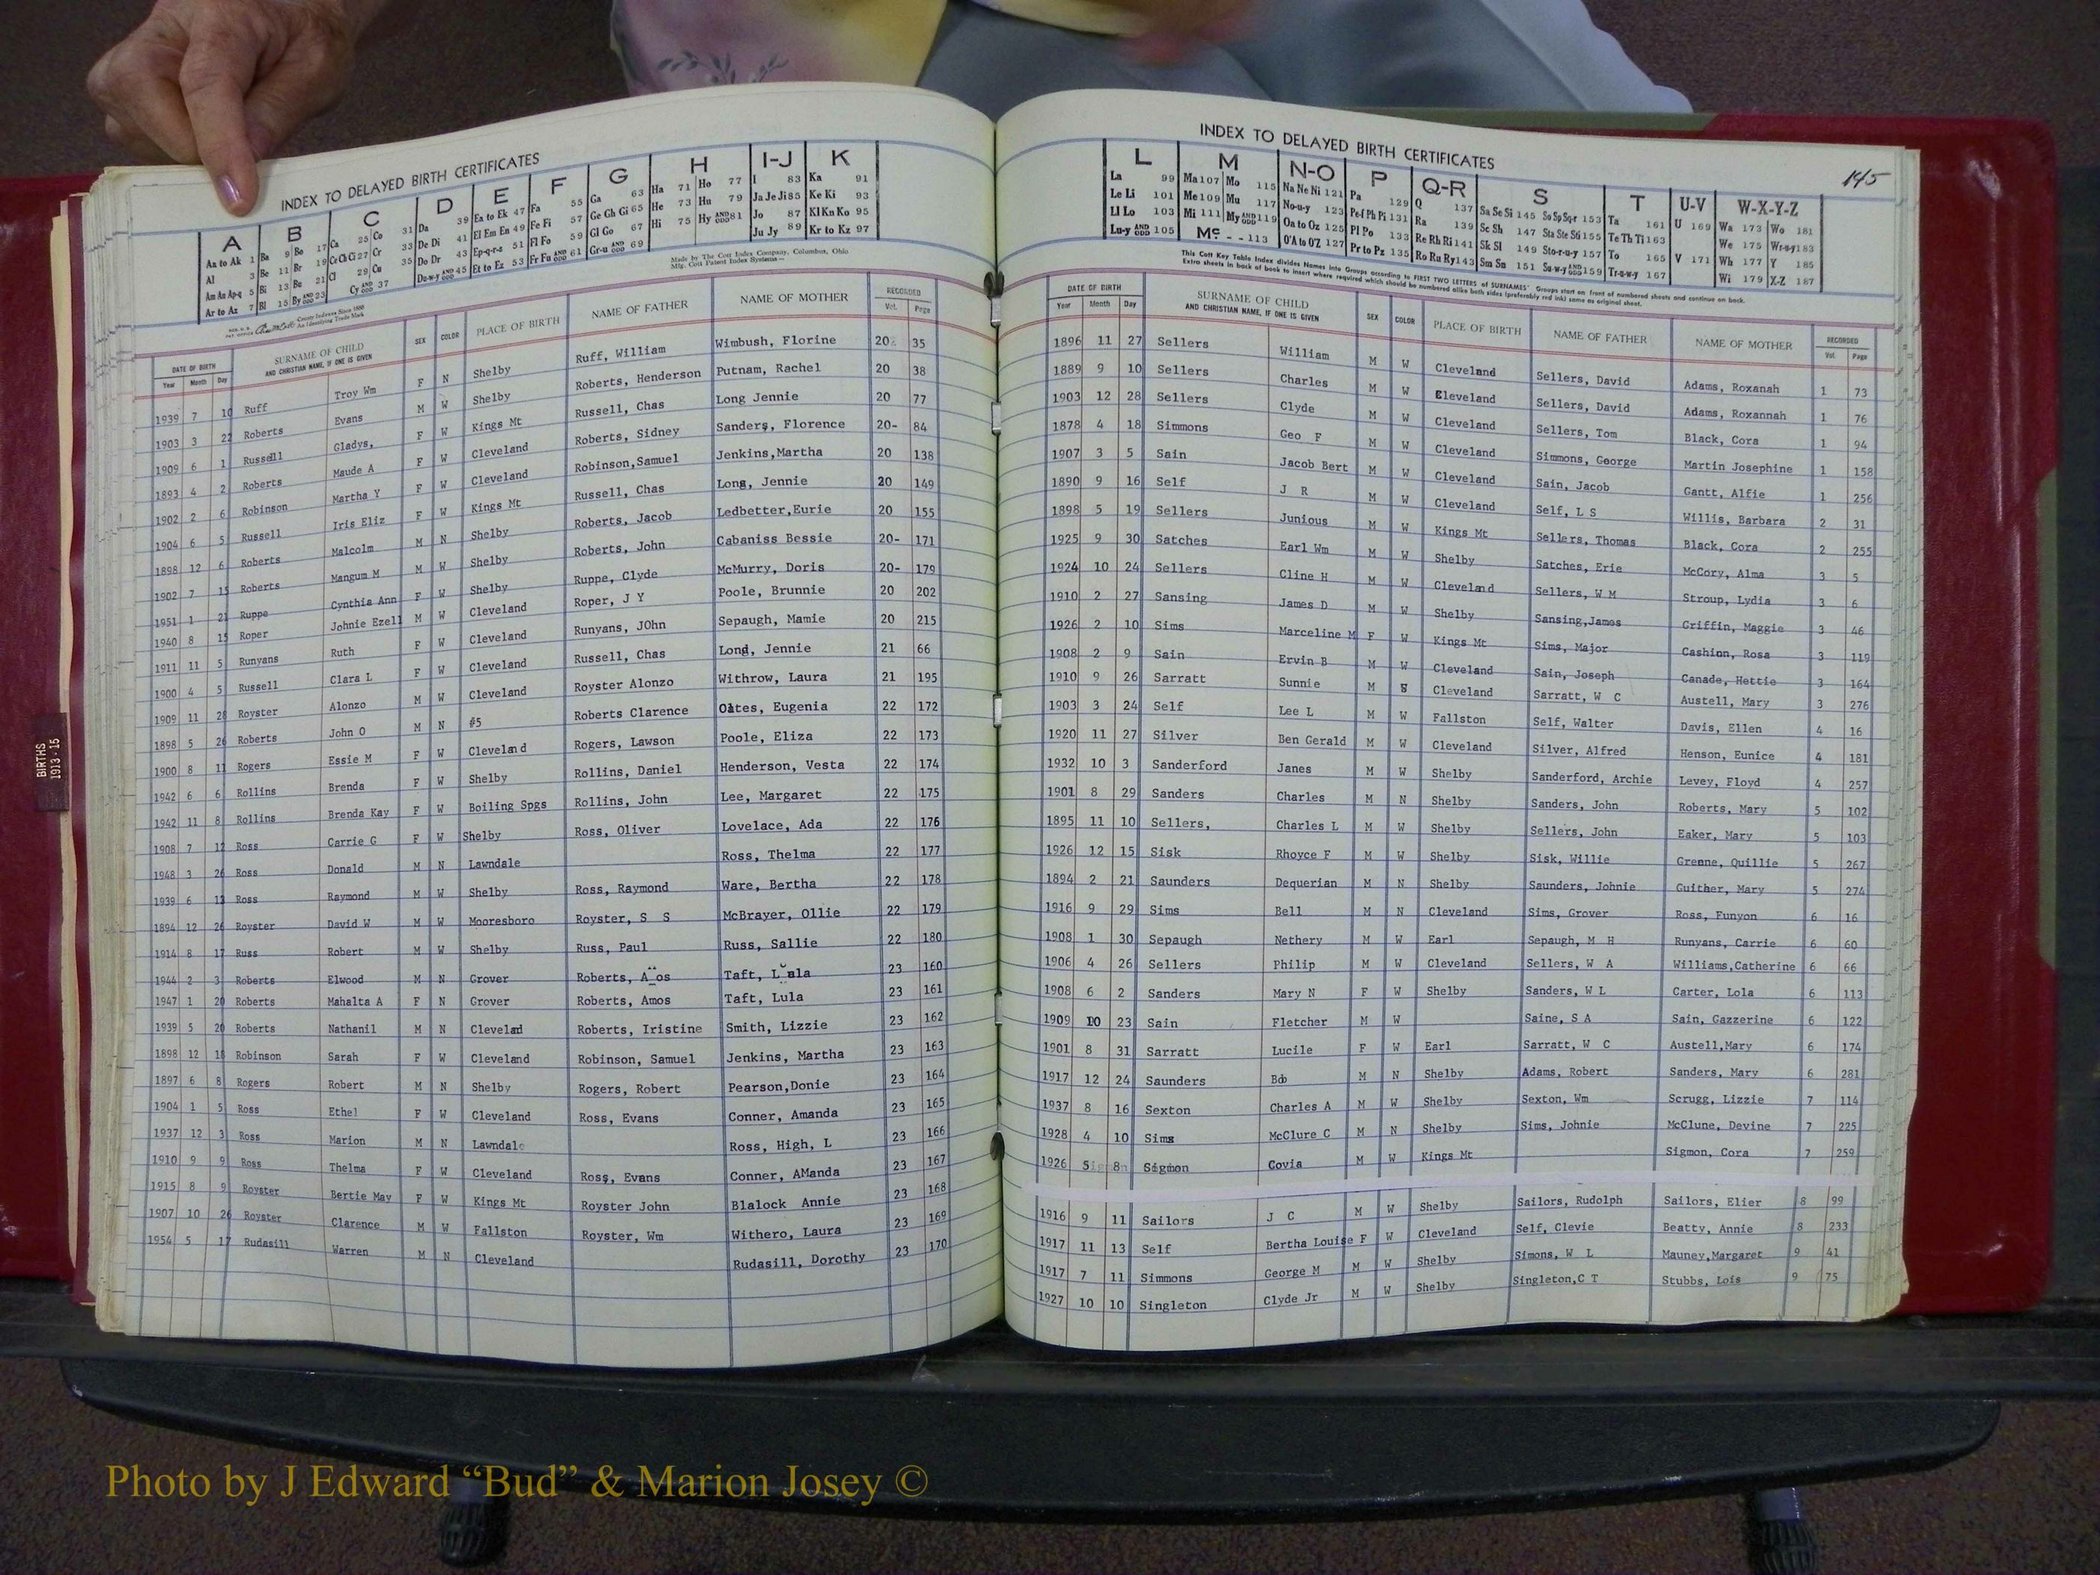 INDEX TO DELAYED BIRTH CERTIFICATES
A B C D E F G H I-J K
Made by The Cott Index Company, Columbus, Ohio
DATE OF BIRTH SURNAME OF CHILD AND CHRISTIAN NAME, IF ONE IS GIVEN SEX COLOR PLACE OF BIRTH NAME OF FATHER NAME OF MOTHER RECORDED
Year Month Day Vol. Page
1939 7 10 Ruff Troy Wm F N Shelby Ruff, William Wimbush, Florine 20 35
1903 3 22 Roberts Evans M W Shelby Roberts, Henderson Putnam, Rachel 20 38
1909 6 1 Russell Gladys, F W Kings Mt Russell, Chas Long Jennie 20 77
1893 4 2 Roberts Maude A F W Cleveland Roberts, Sidney Sanders, Florence 20- 84
1902 2 6 Robinson Martha Y F W Cleveland Robinson,Samuel Jenkins,Martha 20 138
1904 6 5 Russell Iris Eliz F W Kings Mt Russell, Chas Long, Jennie 20 149
1898 12 6 Roberts Malcolm M N Shelby Roberts, Jacob Ledbetter,Eurie 20 155
1902 7 15 Roberts Mangum M M W Shelby Roberts, John Cabaniss Bessie 20- 171
1951 1 21 Ruppe Cynthia Ann F W Shelby Ruppe, Clyde McMurry, Doris 20- 179
1940 8 15 Roper Johnie Ezell M W Cleveland Roper, J Y Poole, Brunnie 20 202
1911 11 5 Runyans Ruth F W Cleveland Runyans, JOhn Sepaugh, Mamie 20 215
1900 4 5 Russell Clara L F W Cleveland Russell, Chas Long, Jennie 21 66
1909 11 28 Royster Alonzo M W Cleveland Royster Alonzo Withrow, Laura 21 195
1898 5 26 Roberts John O M N #5 Roberts Clarence Oates, Eugenia 22 172
1900 8 11 Rogers Essie M F W Cleveland Rogers, Lawson Poole, Eliza 22 173
1942 6 6 Rollins Brenda F W Shelby Rollins, Daniel Henderson, Vesta 22 174
1942 11 8 Rollins Brenda Kay F W Boiling Spgs Rollins, John Lee, Margaret 22 175
1908 7 12 Ross Carrie G F W Shelby Ross, Oliver Lovelace, Ada 22 176
1948 3 26 Ross Donald M N Lawndale Ross, Thelma 22 177
1939 6 13 Ross Raymond M W Shelby Ross, Raymond Ware, Bertha 22 178
1894 12 26 Royster David W M W Mooresboro Royster, S S McBrayer, Ollie 22 179
1914 8 17 Russ Robert M W Shelby Russ, Paul Russ, Sallie 22 180
1944 2 3 Roberts Elwood M N Grover Roberts, Amos Taft, Lula 23 160
1947 1 20 Roberts Mahalta A F N Grover Roberts, Amos Taft, Lula 23 161
1939 5 20 Roberts Nathanil M N Cleveland Roberts, Iristine Smith, Lizzie 23 162
1898 12 18 Robinson Sarah F W Cleveland Robinson, Samuel Jenkins, Martha 23 163
1897 6 8 Rogers Robert M N Shelby Rogers, Robert Pearson,Donie 23 164
1904 1 5 Ross Ethel F W Cleveland Ross, Evans Conner, Amanda 23 165
1937 12 3 Ross Marion M N Lawndale Ross, High, L 23 166
1910 9 9 Ross Thelma F W Cleveland Ross, Evans Conner, AManda 23 167
1915 8 9 Royster Bertie May F W Kings Mt Royster John Blalock Annie 23 168
1907 10 26 Royster Clarence M W Fallston Royster, Wm Withero, Laura 23 169
1954 5 17 Rudasill Warren M N Cleveland Rudasill, Dorothy 23 170
INDEX TO DELAYED BIRTH CERTIFICATES
145
L M N-O P Q-R S T U-V W-X-Y-Z
This Cott Key Table Index divides Names into Groups according to FIRST TWO LETTERS of SURNAMES Groups start on front of numbered sheets and continue on back.
Extra sheets in back of book to insert where required which should be numbered alike both sides (preferably red ink) same as original sheet.
DATE OF BIRTH SURNAME OF CHILD AND CHRISTIAN NAME, IF ONE IS GIVEN SEX COLOR PLACE OF BIRTH NAME OF FATHER NAME OF MOTHER RECORDED
Year Month Day Vol. Page
1896 11 27 Sellers William M W Cleveland Sellers, David Adams, Roxanah 1 73
1889 9 10 Sellers Charles M W Cleveland Sellers, David Adams, Roxannah 1 76
1903 12 28 Sellers Clyde M W Cleveland Sellers, Tom Black, Cora 1 94
1878 4 18 Simmons Geo F M W Cleveland Simmons, George Martin Josephine 1 158
1907 3 5 Sain Jacob Bert M W Cleveland Sain, Jacob Gantt, Alfie 1 256
1890 9 16 Self J R M W Cleveland Self, L S Willis, Barbara 2 31
1898 5 19 Sellers Junious M W Kings Mt Sellers, Thomas Black, Cora 2 255
1925 9 30 Satches Earl Wm M W Shelby Satches, Erie McCory, Alma 3 5
1924 10 24 Sellers Cline H M W Cleveland Sellers, W M Stroup, Lydia 3 6
1910 2 27 Sansing James D M W Shelby Sansing,James Griffin, Maggie 3 46
1926 2 10 Sims Marceline M F W Kings Mt Sims, Major Cashion, Rosa 3 119
1908 2 9 Sain Ervin B M W Cleveland Sain, Joseph Canade, Hettie 3 164
1910 9 26 Sarratt Sunnie M Cleveland Sarratt, W C Austell, Mary 3 276
1903 3 24 Self Lee L M W Fallston Self, Walter Davis, Ellen 4 16
1920 11 27 Silver Ben Gerald M W Cleveland Silver, Alfred Henson, Eunice 4 181
1932 10 3 Sanderford Janes M W Shelby Sanderford, Archie Levey, Floyd 4 257
1901 8 29 Sanders Charles M N Shelby Sanders, John Roberts, Mary 5 102
1895 11 10 Sellers, Charles L M W Shelby Sellers, John Eaker, Mary 5 103
1926 12 15 Sisk Rhoyce F M W Shelby Sisk, Willie Grenne, Quillie 5 267
1894 2 21 Saunders Dequerian M N Shelby Saunders, Johnie Guither, Mary 5 274
1916 9 29 Sims Bell M N Cleveland Sims, Grover Ross, Funyon 6 16
1908 1 30 Sepaugh Nethery M W Earl Sepaugh, M H Runyans, Carrie 6 60
1906 4 26 Sellers Philip M W Cleveland Sellers, W A Williams,Catherine 6 66
1908 6 2 Sanders Mary N F W Shelby Sanders, W L Carter, Lola 6 113
1909 10 23 Sain Fletcher M W Saine, S A Sain, Gazzerine 6 122
1901 8 31 Sarratt Lucile F W Earl Sarratt, W C Austell,Mary 6 174
1917 12 24 Saunders Bob M N Shelby Adams, Robert Sanders, Mary 6 281
1937 8 16 Sexton Charles A M W Shelby Sexton, Wm Scrugg, Lizzie 7 114
1928 4 10 Sims McClure C M N Shelby Sims, Johnie McClune, Devine 7 225
1926 5 8 Sigmon Covia M W Kings Mt Sigmon, Cora 7 259
1916 9 11 Sailors J C M W Shelby Sailors, Rudolph Sailors, Elier 8 99
1917 11 13 Self Bertha Louise F W Cleveland Self, Clevie Beatty, Annie 8 233
1917 7 11 Simmons George M M W Shelby Simons, W L Mauney,Margaret 9 41
1927 10 10 Singleton Clyde Jr M W Shelby Singleton,C T Stubbs, Lois 9 75
BIRTHS
1913-15
Photo by J Edward “Bud” & Marion Josey ©